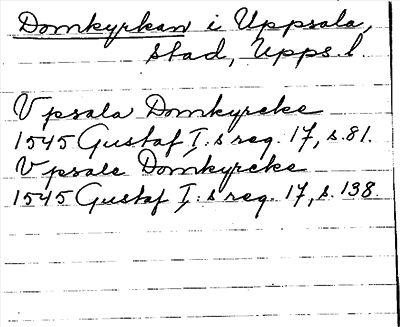 Domkyrkan i Uppsala,
stad, Upps. l
Vpsala Domkyrcke
1545 Gustaf I:s reg. 17, s. 81.
Vpsale Domkyrcke
1545 Gustaf I:s reg. 17, s. 138.